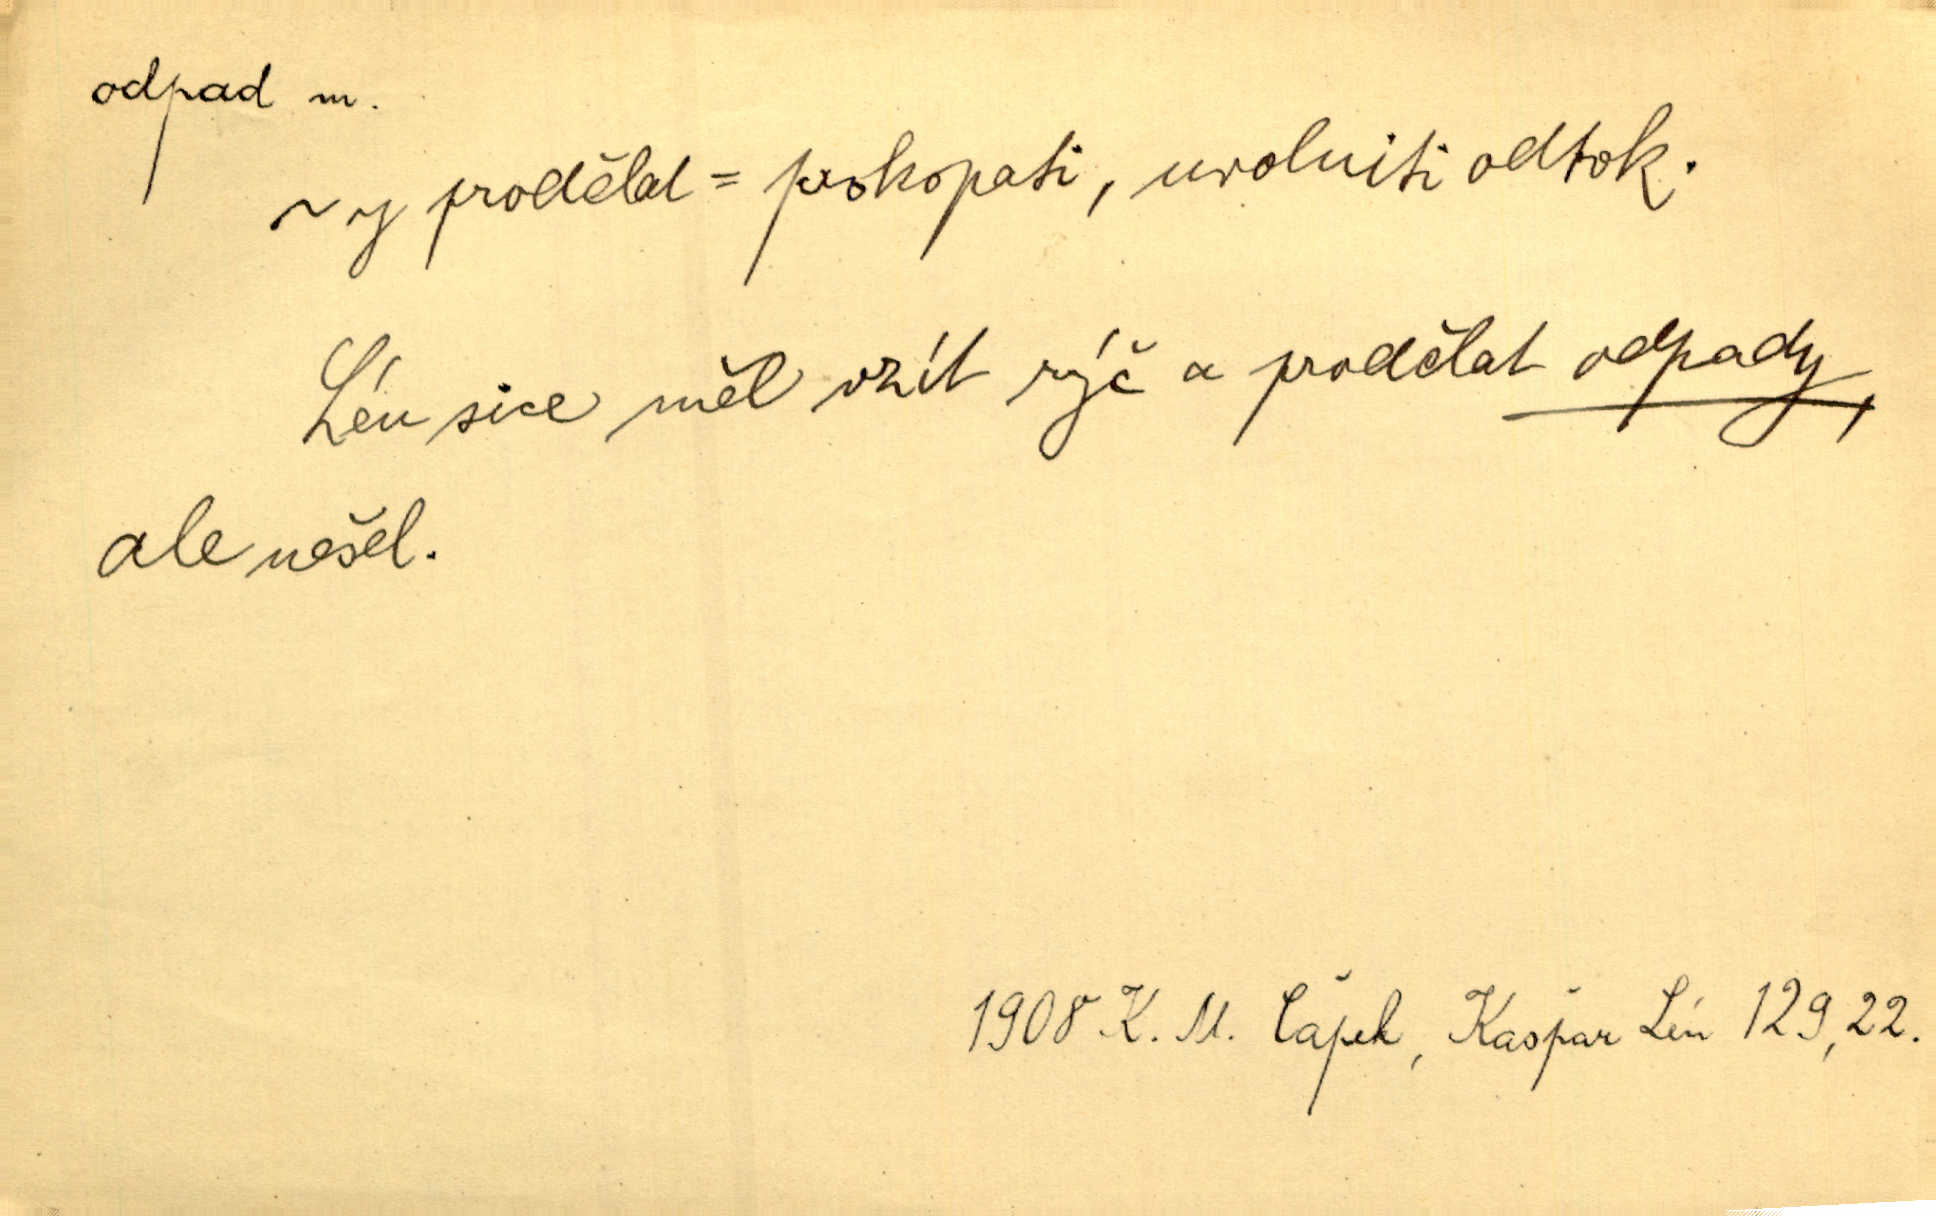 odpad m.
~y prodělat = prokopati, uvolniti odtok.
Lén sice měl vzít rýč a prodělat odpady,
ale nešel.
1908 K. M. Čapek, Kašpar Lén 129,22.